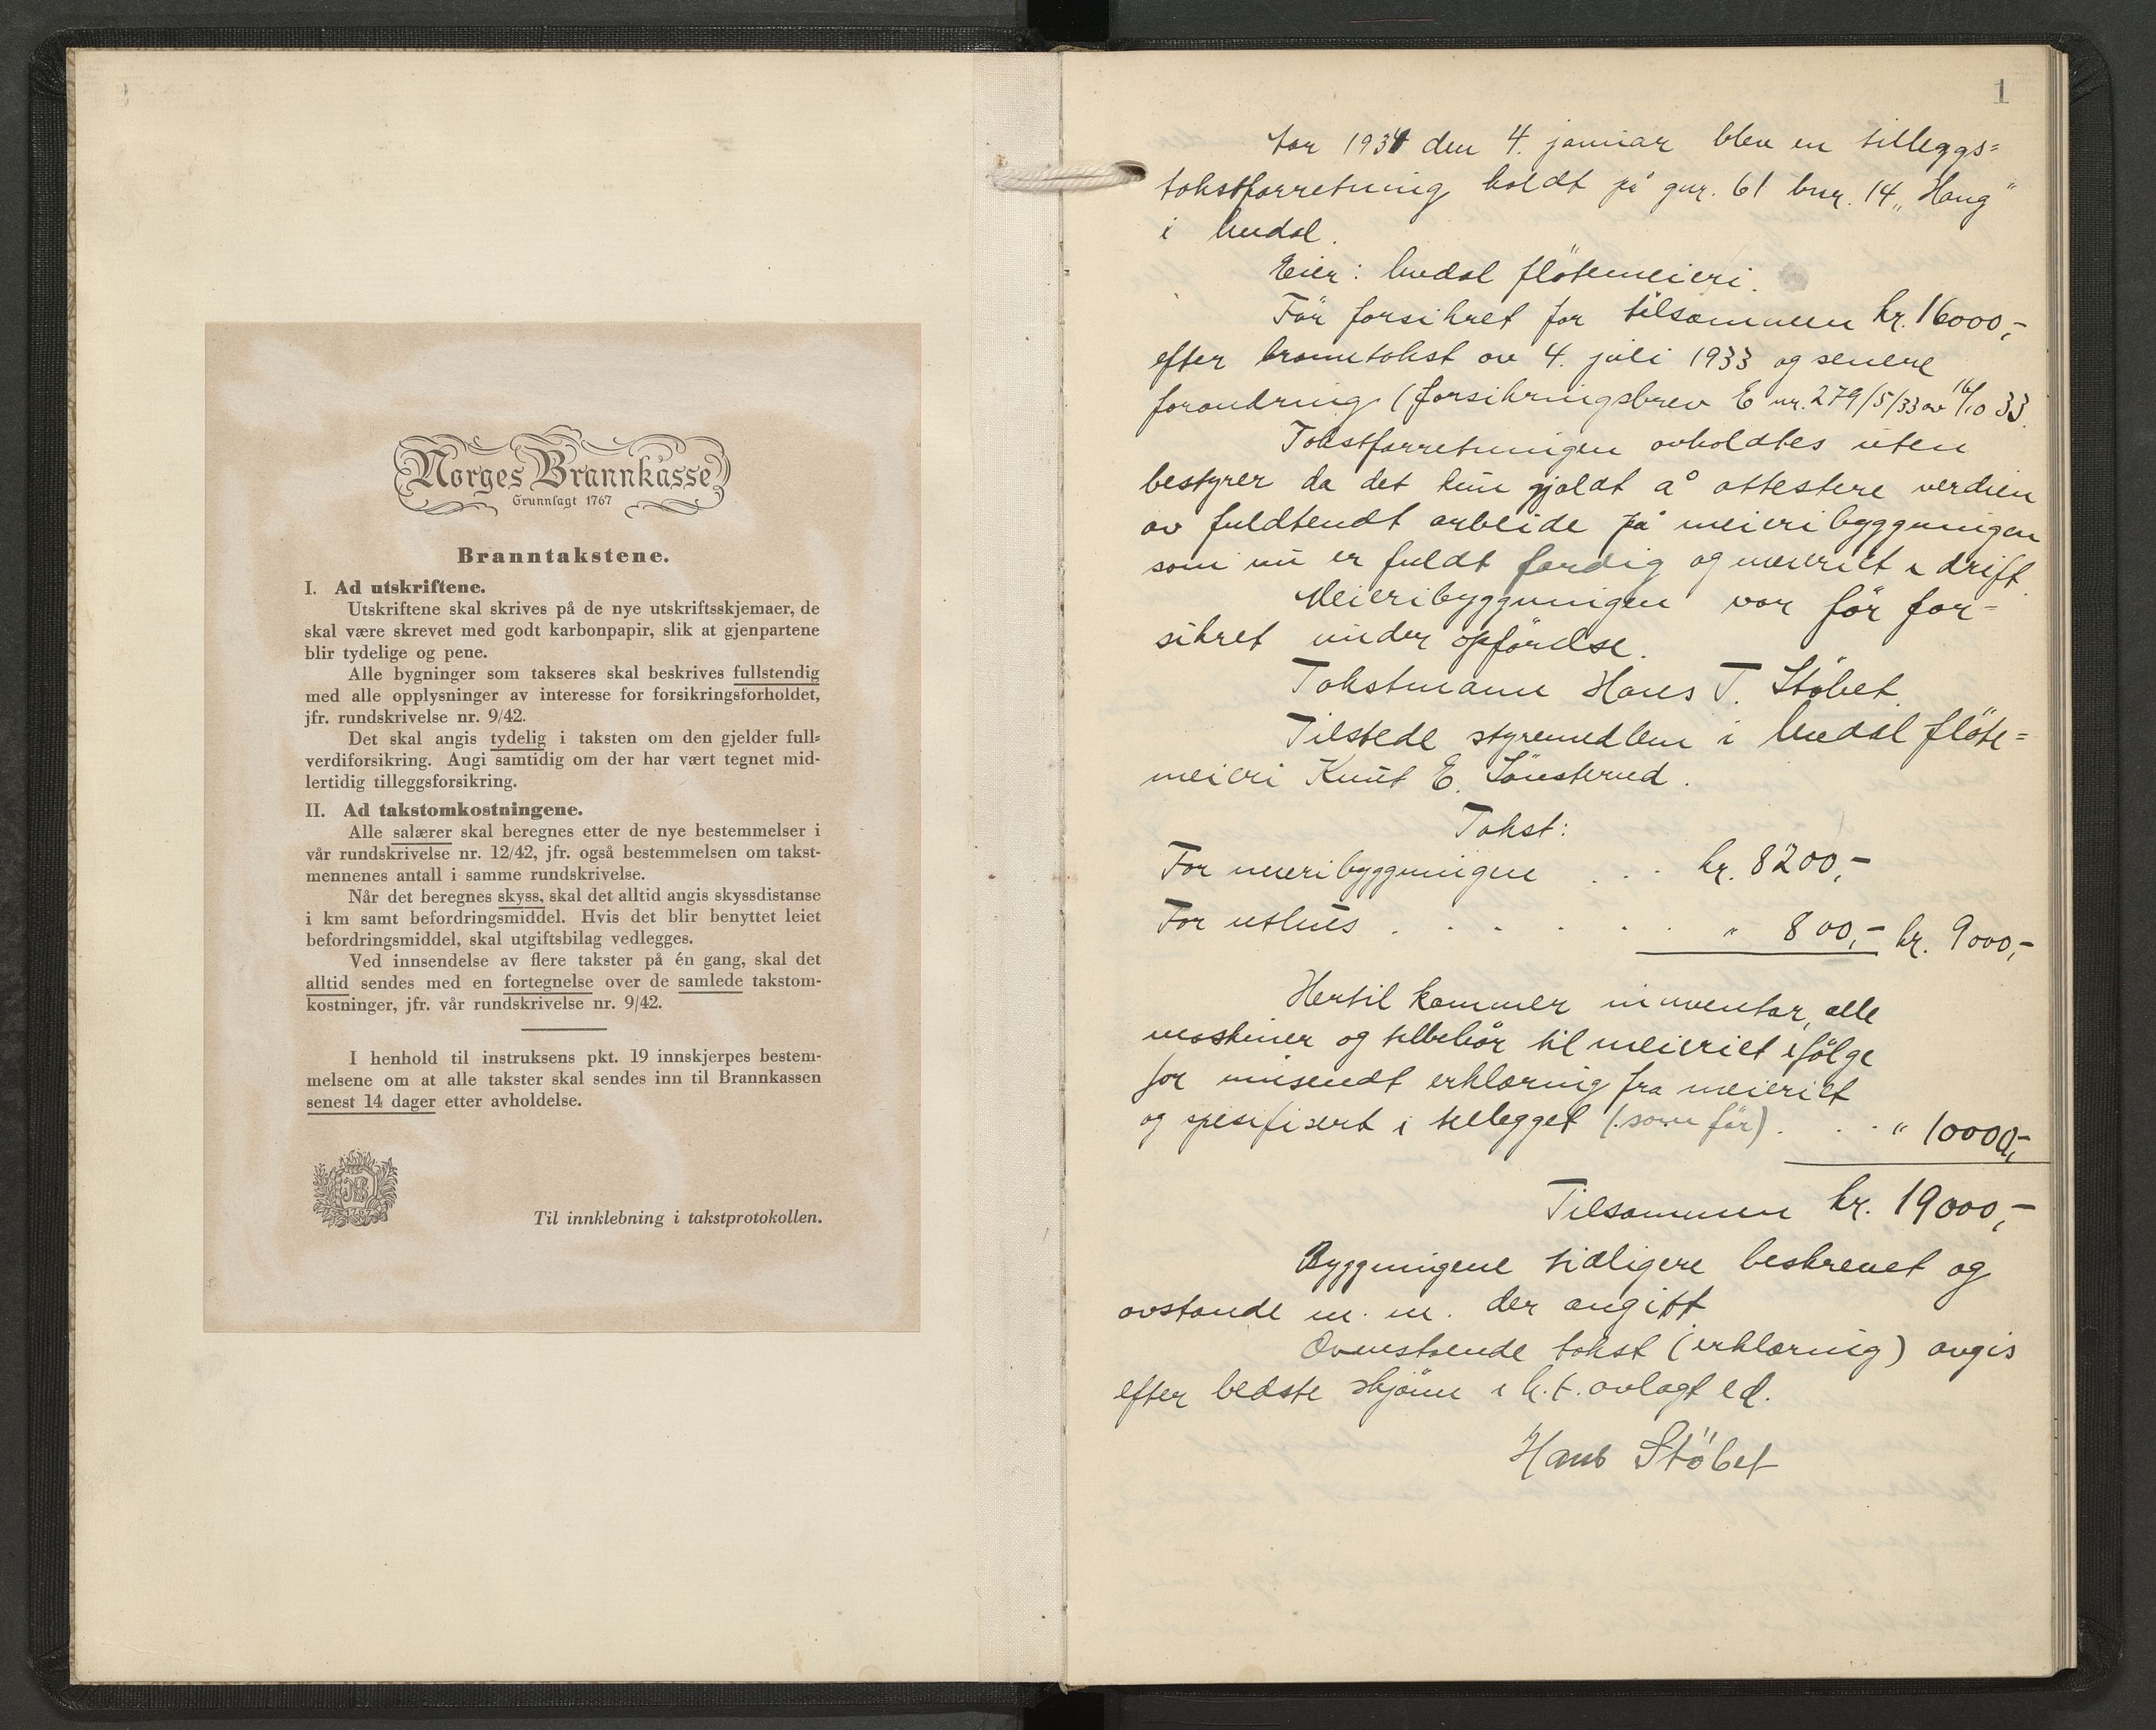 Norges Brannkasse
Grunnlagt 1767
Branntakstene.
I. Ad utskriftene.
Utskriftene skal skrives på de nye utskriftsskjemaer, de
skal være skrevet med godt karbonpapir, slik at gjenpartene
blir tydelige og pene.
Alle bygninger som takseres skal beskrives fullstendig
med alle opplysninger av interesse for forsikringsforholdet,
jfr. rundskrivelse nr. 9/42.
Det skal angis tydelig i taksten om den gjelder full-
verdiforsikring. Angi samtidig om der har vært tegnet mid-
lertidig tilleggsforsikring.
II. Ad takstomkostningene.
Alle salærer skal beregnes etter de nye bestemmelser i
vår rundskrivelse nr. 12/42, jfr. også bestemmelsen om takst-
mennenes antall i samme rundskrivelse.
Når det beregnes skyss, skal det alltid angis skyssdistanse
i km samt befordringsmiddel. Hvis det blir benyttet leiet
befordringsmiddel, skal utgiftsbilag vedlegges.
Ved innsendelse av flere takster på én gang, skal det
alltid sendes med en fortegnelse over de samlede takstom-
kostninger, jfr. vår rundskrivelse nr. 9/42.
I henhold til instruksens pkt. 19 innskjerpes bestem-
melsene om at alle takster skal sendes inn til Brannkassen
senest 14 dager etter avholdelse.
Til innklebning i takstprotokollen.
1
Aar 1934 den 4. januar blev en tilleggs=
takstforretning holdt på gnr. 61 bnr. 14 „Haug"
i Uvdal.
Eier: Uvdal flötemeieri.
För forsikret for tilsammen kr. 16000,-
efter branntakst av 4. juli 1933 og senere
forandring (forsikringsbrev E nr. 279/5/33 av 16/10 33.
Takstforretningen avholdtes uten
bestyrer da det kun gjaldt å attestere verdien
av fuldtendt arbeide på meieribyggningen
som nu er fuldt færdig og meieriet i drift.
Meieribyggningen var för for-
sikret under opförelse.
Takstmann Hans T. Stöbet.
Tilstede styremedlem i Uvdal flöte=
meieri Knut E. Sönsterud.
Takst:
For meieribyggningen . . . kr. 8200,-
For uthus . . . . . . " 800,- kr. 9000,-
Hertil kommer innventar, alle
maskiner og tilbehör til meieriet ifölge
for innsendt erklæring fra meieriet
og spesifisert i tillegget (som för) . . . " 10000,-
Tilsammen kr. 19000,-
Byggningene tidligere beskrevet og
avstande m. m. der angitt.
Ovenstaende takst (erklæring) avgis
efter bedste skjönn i h. t. avlagt ed.
Hans Stöbet